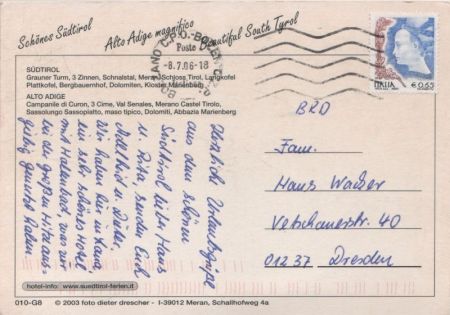 Schönes Südtirol
Alto Adige magnifico
Beautiful South Tyrol
SÜDTIROL
Grauner Turm, 3 Zinnen, Schnalstal, Meran Schloss Tirol, Langkofel
Plattkofel, Bergbauernhof, Dolomiten, Kloster Marienberg
ALTO ADIGE
Campanile di Curon, 3 Cime, Val Senales, Merano Castel Tirolo,
Sassolungo Sassopiatto, maso tipico, Dolomiti, Abbazia Marienberg
Poste
-8.7.06-18
ITALIA
€0,65
BRD
Fam.
Hans Wacker
Vetschauerstr. 40
01237 Dresden
Herzliche Urlaubsgrüße
aus dem schönen
Südtirol Haus
u. senden Euch
u.
Wir haben hier in Lana
ein sehr schönes Hotel
mit Hallenbad, was wir
bei der großen Hitze aus-
giebig genutzt haben.
hotel-info: www.suedtirol-ferien.it
010-G8 © 2003 foto dieter drescher - I-39012 Meran, Schallhofweg 4a